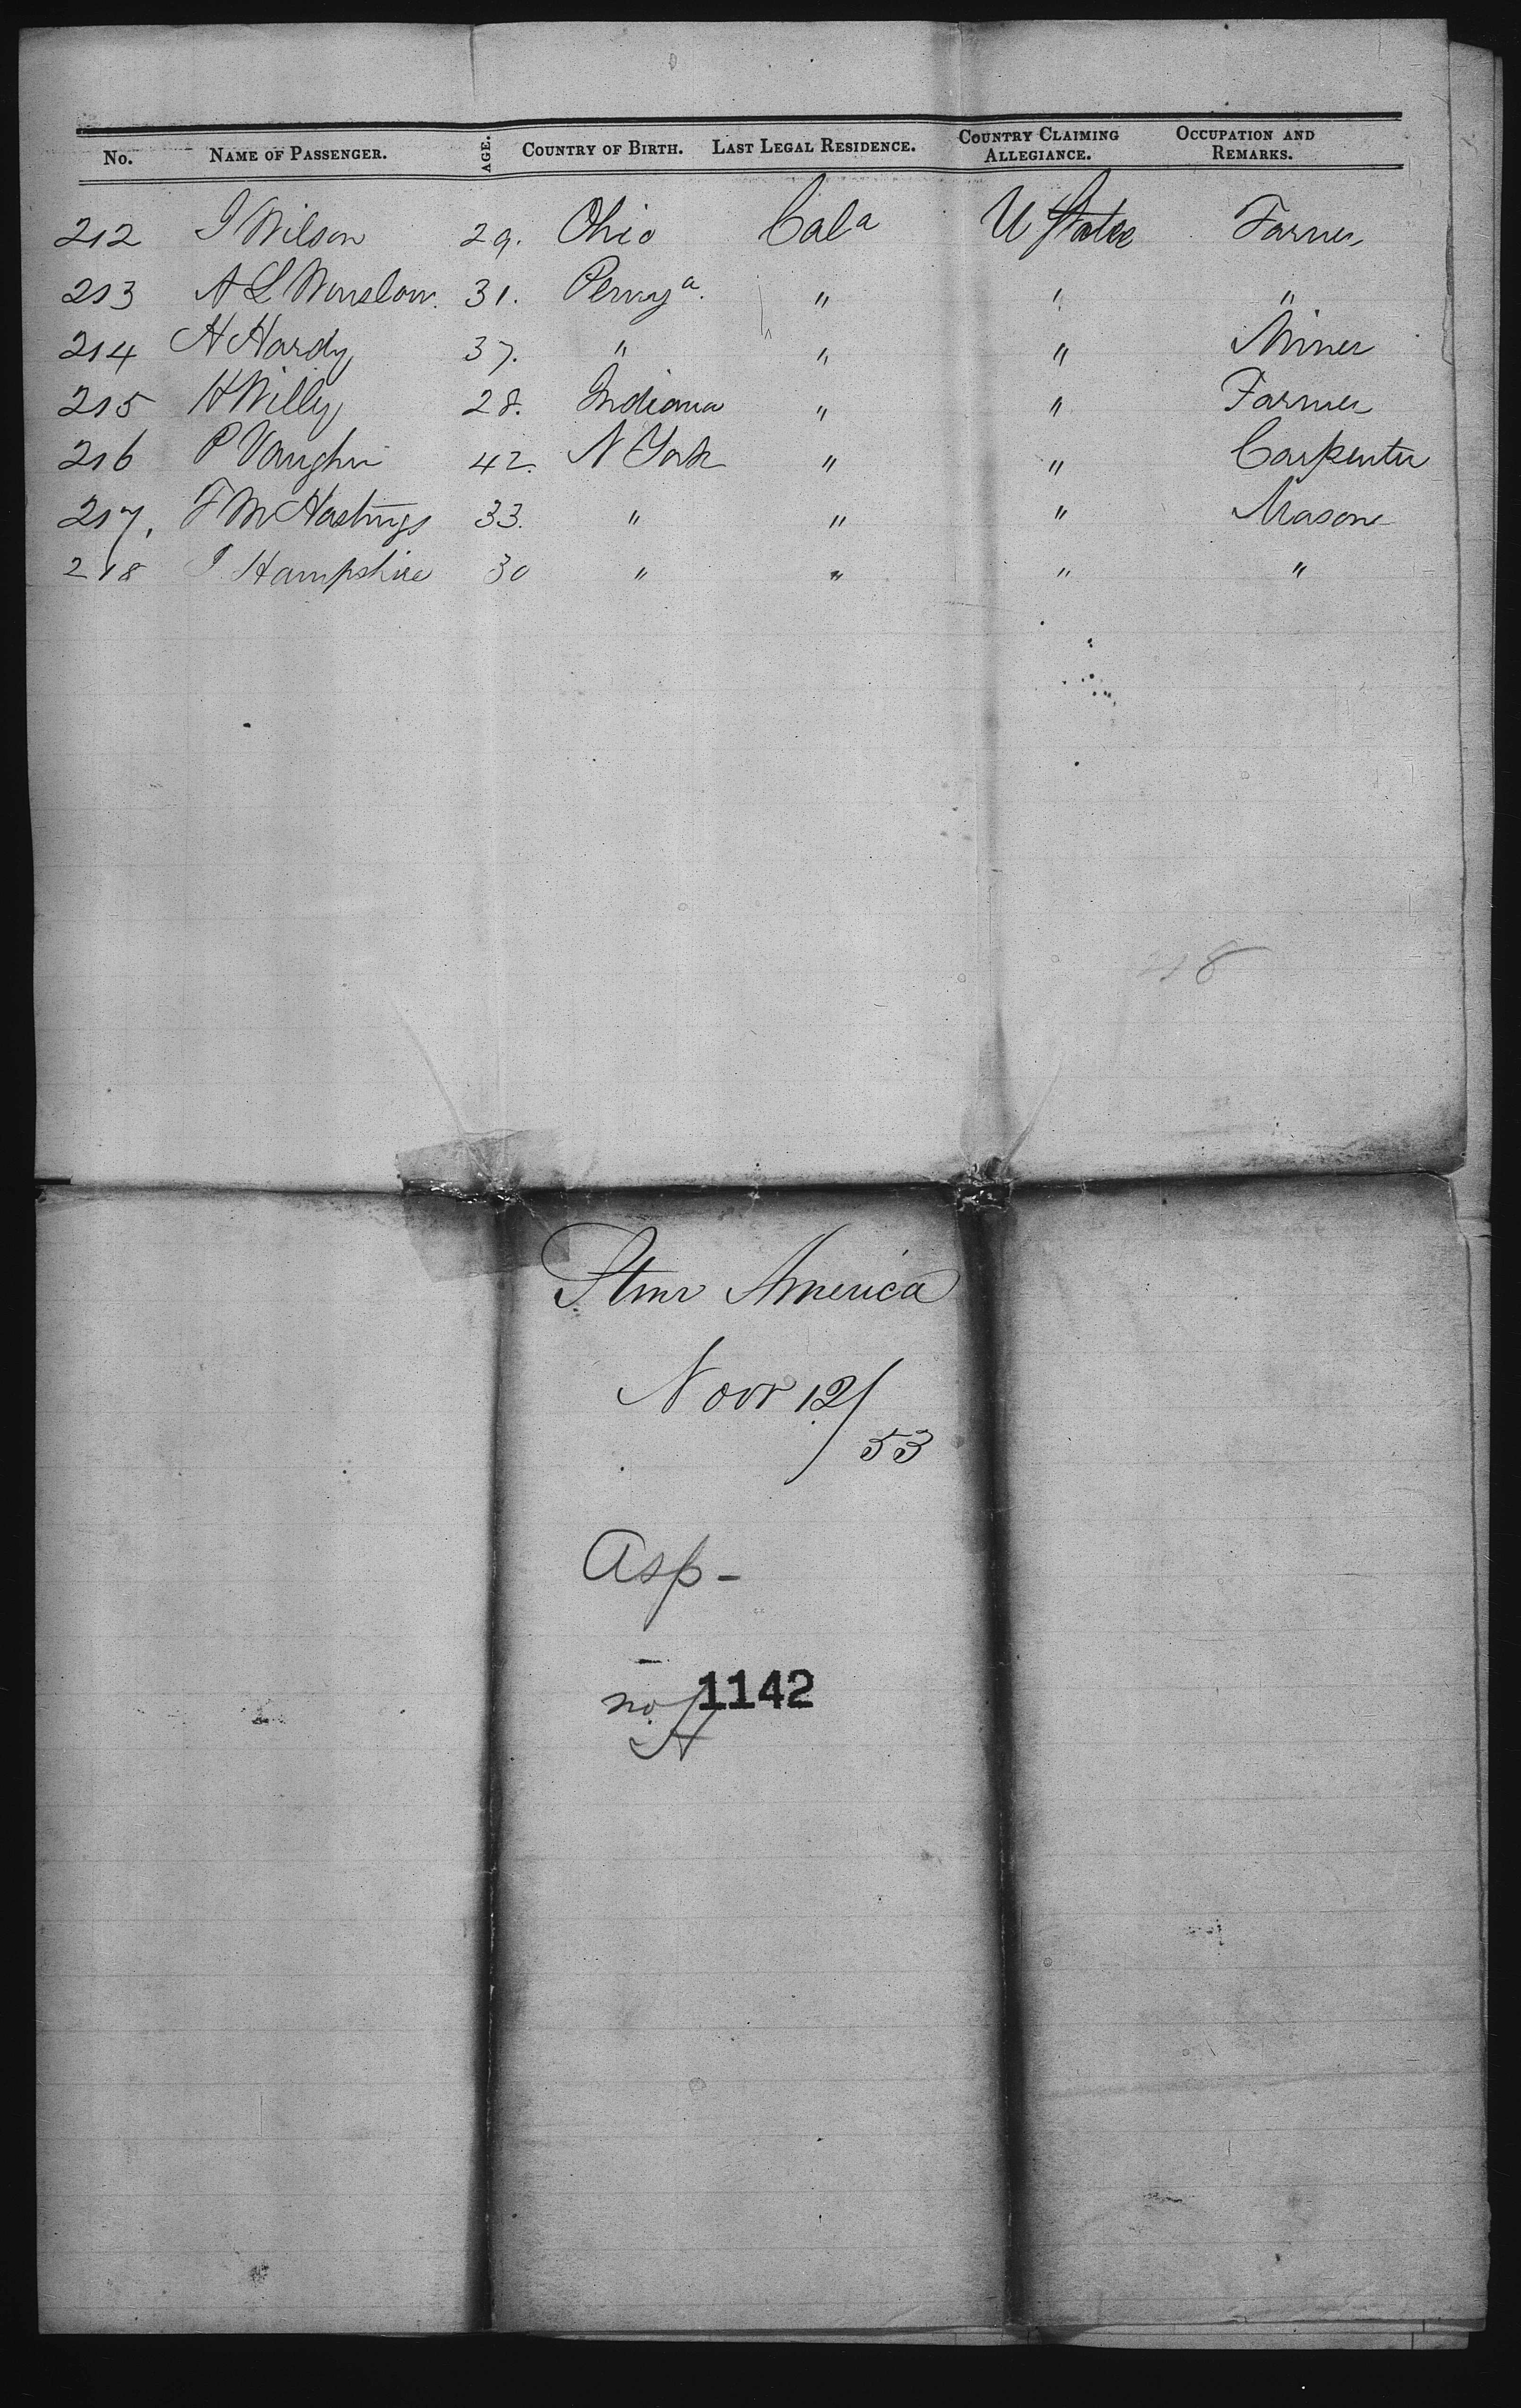 No. NAME OF PASSENGER. AGE. COUNTRY OF BIRTH. LAST LEGAL RESIDENCE. COUNTRY CLAIMING ALLEGIANCE. OCCUPATION AND REMARKS.
212 I Wilson 29. Ohio Cala U States Farmer
213 A L Winslow. 31. Pennya. " " "
214 H Hardy 37. " " " Miner
215 H Willy 28. Indiana " " Farmer
216 P Vaughn 42. N York " " Carpenter
217. F M Hastings 33. " " " Mason
218 I Hampshire 30 " " " "
218
Stmr America
Novr 12/53
Asp-
no 1142